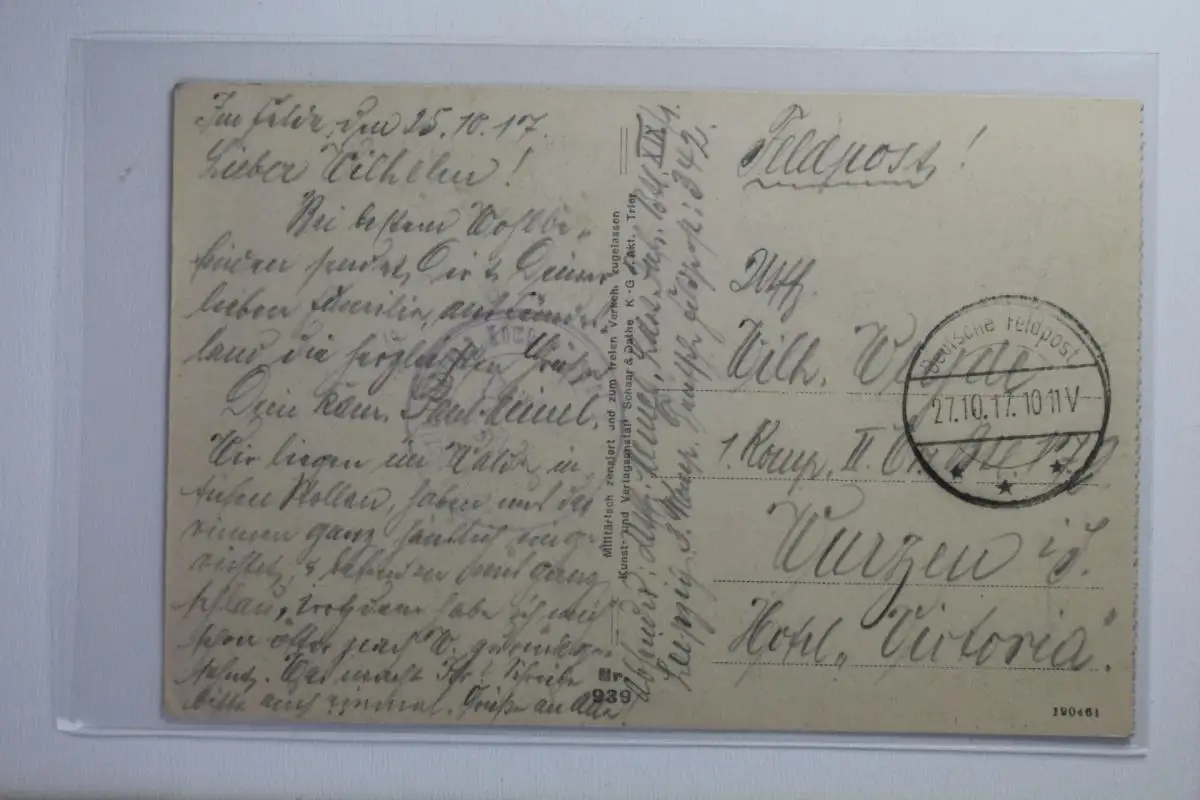 Im Felde, den 25.10.17.
Lieber Wilhelm!
Bei bestem Wohlbe-
finden sendet Dir u. Deiner
lieben Familie, aus
land die herzlichsten Grüße
Dein Kam. Paul
Wir liegen im Walde in
tiefen Stollen, haben uns da
rinnen ganz häuslich einge-
richtet, u. befinden uns ganz
trotzdem habe ich mich
schon öfter nach W. zurückge-
sehnt. Was macht Ihr? Schreibe
bitte auch einmal. Grüße an Alle
Militärisch zensiert und zum freien Verkehr zugelassen
Kunst- und Verlagsanstalt Schaar & Dathe K.-G. a. Akt. Trier
Nr.
939
Absender: Utffz. Batl. XIX/1.
Leipzig 3. Komp. Deutsche Feldpost 342.
Feldpost!
Utffz.
Wilh.
1. Komp. II.
Wurzen i. S.
Hotel „Victoria".
Deutsche Feldpost
27.10.17. 10 11 V
190461